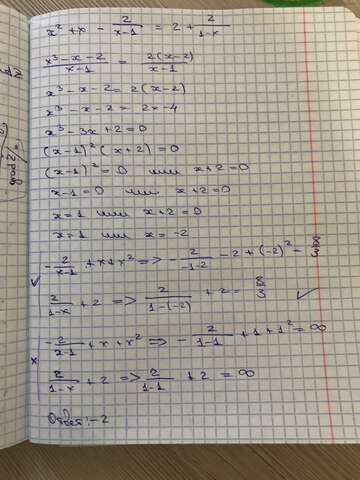 x² + x - 2/(x-1) = 2 + 2/(1-x)
(x³-x-2)/(x-1) = 2(x-2)/(x-1)
x³-x-2 = 2(x-2)
x³-x-2 = 2x-4
x³-3x+2=0
(x-1)²(x+2)=0
(x-1)²=0 или x+2=0
x-1=0 или x+2=0
x=1 или x+2=0
x=1 или x=-2
-2/(x-1) + x + x² => -2/(-1-2) - 2 + (-2)² = 8/3
2/(1-x) + 2 => 2/(1-(-2)) + 2 = 8/3 ✓
-2/(x-1) + x + x² => -2/(1-1) + 1 + 1² = ∞
2/(1-x) + 2 => 2/(1-1) + 2 = ∞
Ответ: -2